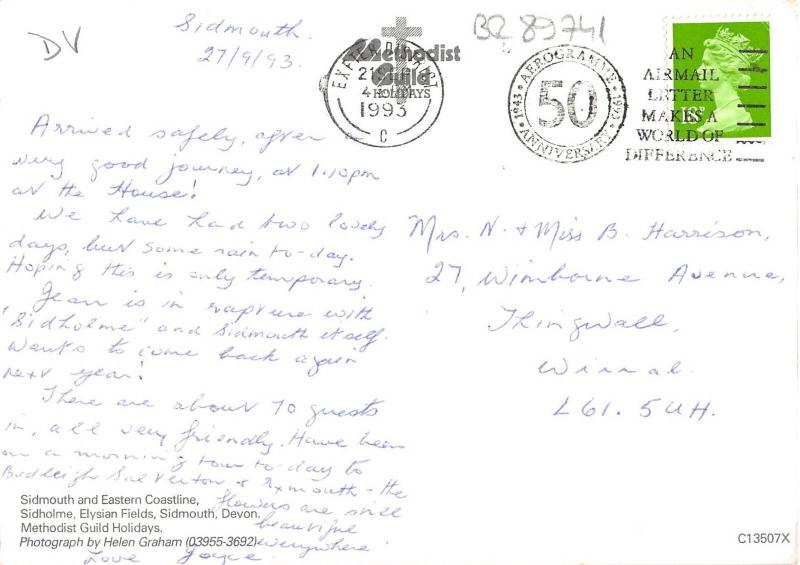 DV
Sidmouth.
27/9/93.
BR 89741
Methodist
Guild
HOLIDAYS
EXETER DISTRICT
1993
C
AEROGRAMME
1943
50
1993
ANNIVERSARY
AN
AIRMAIL
LETTER
MAKES A
WORLD OF
DIFFERENCE
Arrived safely, after a
very good journey, at 1.10pm
at the House!
We have had two lovely
days, but some rain to-day.
Hoping this is only temporary.
Jean is in rapture with
"Sidholme" and Sidmouth itself.
Wants to come back again
next year!
There are about 70 guests
in, all very friendly. Have been
on a morning tour to-day to
Budleigh Salverton & Exmouth - the
flowers are still
beautiful
everywhere
Love Joyce
Mrs. N. & Miss B. Harrison,
27, Wimborne Avenue,
Thingwall,
Wirral.
L61. 5UH.
Sidmouth and Eastern Coastline,
Sidholme, Elysian Fields, Sidmouth, Devon.
Methodist Guild Holidays.
Photograph by Helen Graham (03955-3692)
C13507X